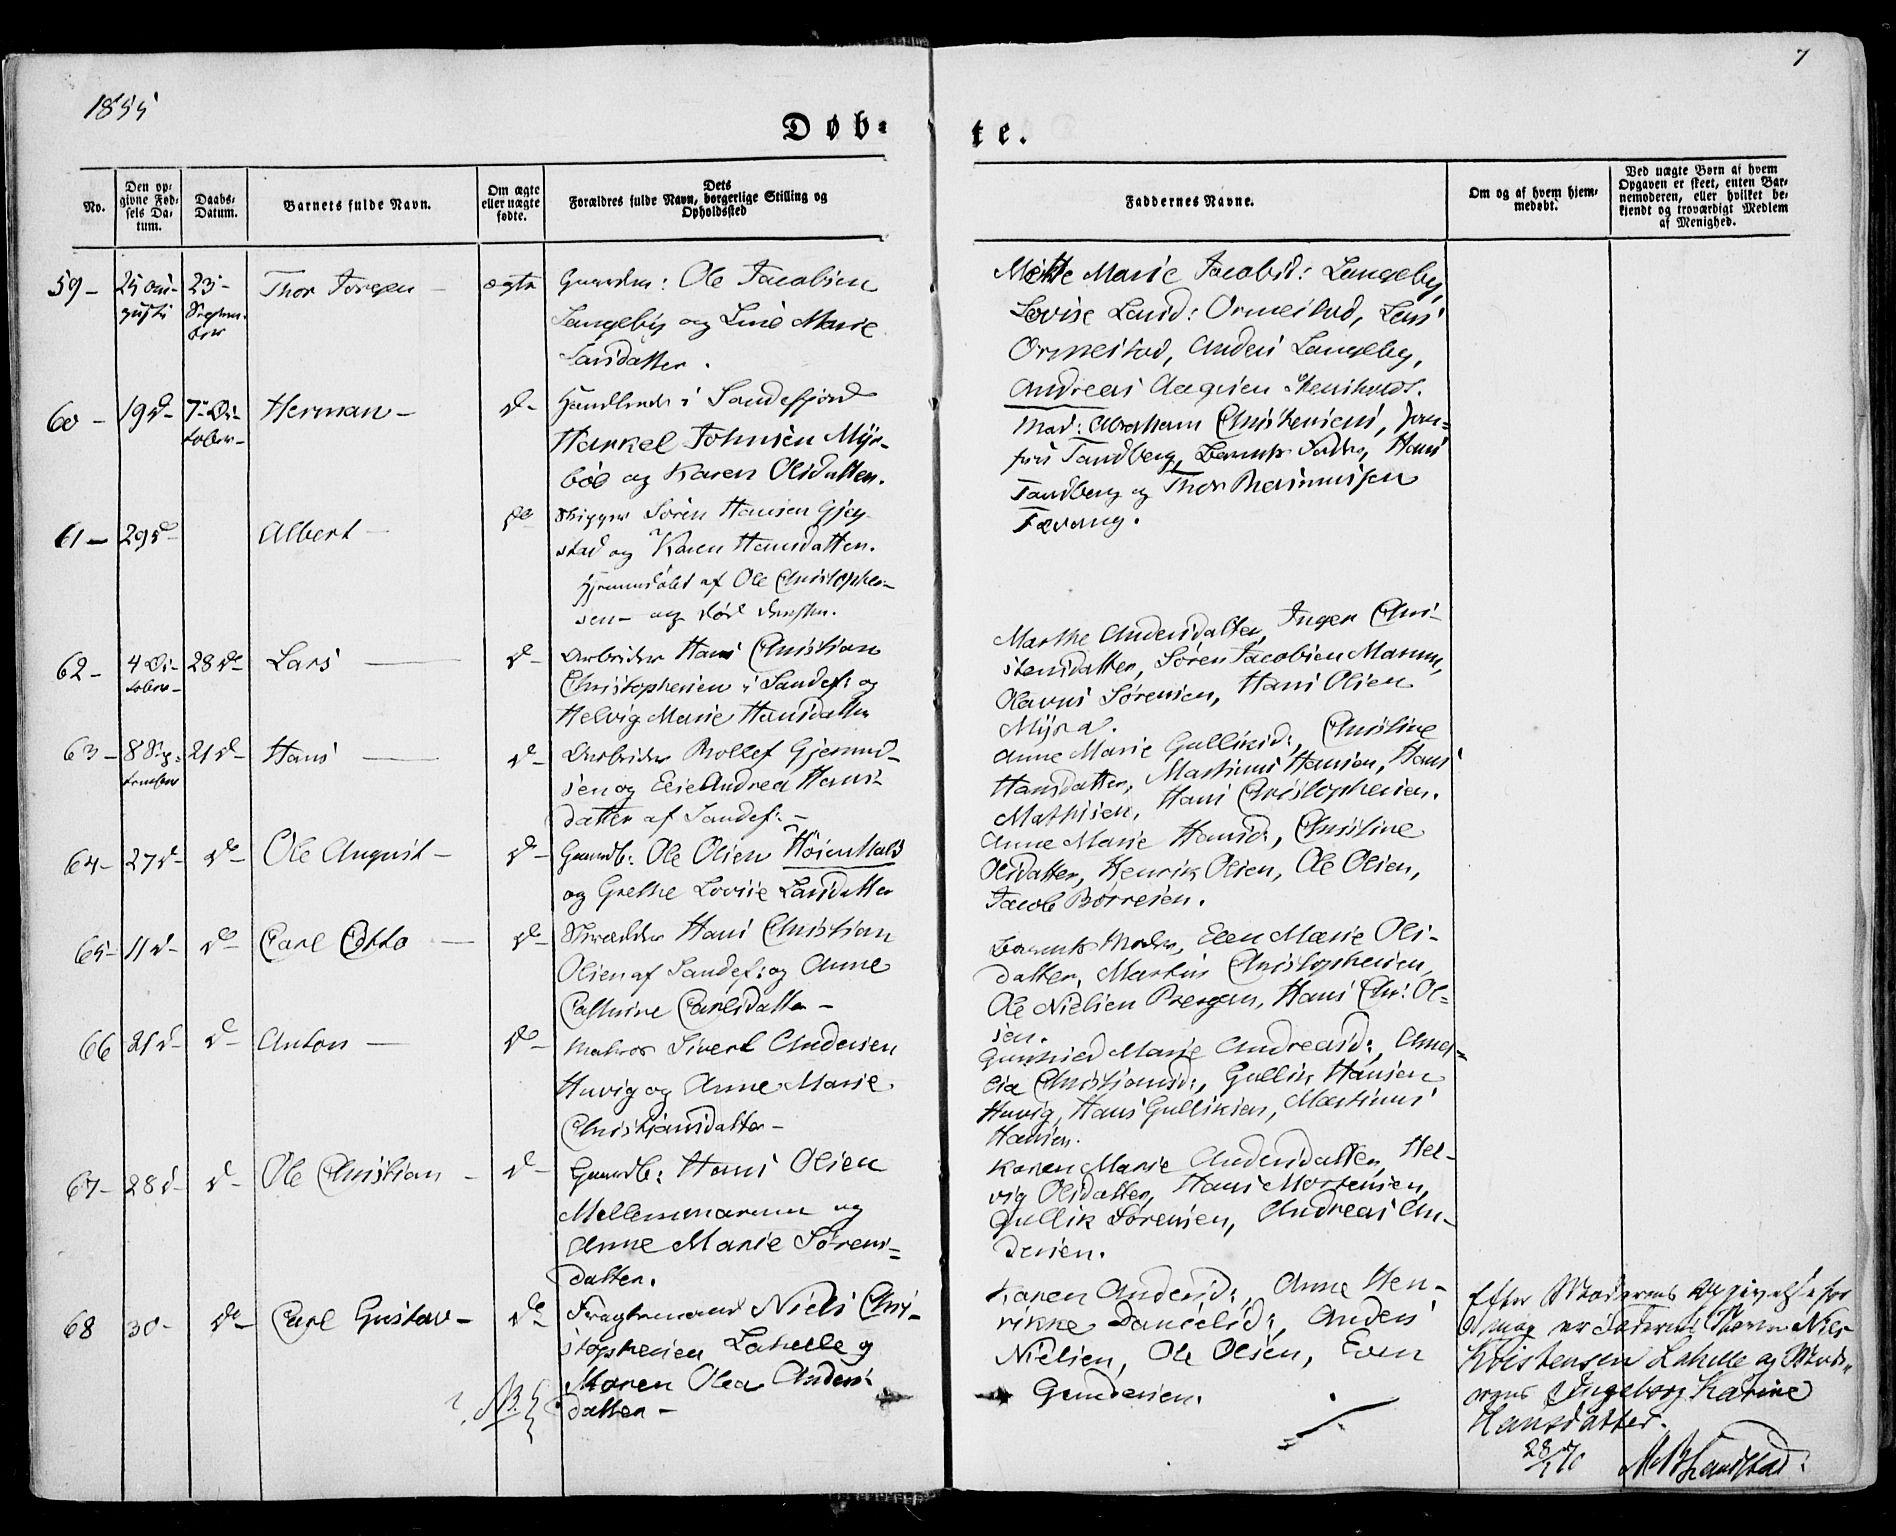 1855
7
Døb-
te.
No.
Den op-
givne Fød-
sels Da-
tum.
Daabs-
Datum.
Barnets fulde Navn.
Om ægte
eller uægte
fødte.
Dets
Forældres fulde Navn, borgerlige Stilling og
Opholdssted
Faddernes Navne.
Om og af hvem hjem-
medøbt.
Ved uægte Børn af hvem
Opgaven er skeet, enten Bar-
nemoderen, eller hvilket be-
kjendt og troværdigt Medlem
af Menighed.
59 - 25 Au- 23- Thor Jørgen - ægte Gaardm: Ole Jacobsen
gusti Septem- Langeby og Line Marie
ber Larsdatter.
Mette Marie Jacobsd: Langeby,
Lovise Larsd: Ormestad, Lars
Ormestad, Anders Langeby,
Andreas Aagesen
60 - 19 d- 7- Oc- Herman - d- i Sandefjord
tober- Harkel Johnsen Myr-
böe og Karen Olsdatter.
Mad: Abraham Christensens, Jom-
fru Tandberg, Barnets Fader, Hans
Tandberg og Thor Rasmussen
61 - 29 d- Albert - do Skipper Sören Hansen Gjey-
stad og Karen Hansdatter.
Hjemmedöbt af Ole Christopher-
sen - og död derefter.
62 - 4 Oc- 28 do Lars d- Arbeider Hans Christian
tober- Christophersen i Sandef: og
Helvig Marie Hansdatter
Marthe Andersdatter, Inger Chri-
stensdatter, Sören Jacobsen Marum,
Olavus Sörensen, Hans Olsen
Myra.
63 - 8 Sep- 21 d- Hans d- Arbeider Rollef Gjerund-
tember sen og Elie Andrea Hans-
datter af Sandef: -
Anne Marie Gulliksd:, Christine
Hansdatter, Martinus Hansen, Hans
Mathisen, Hans Christophersen.
64 - 27 d- do- Ole August - d- Gaardb: Ole Olsen
og Grethe Lovise Larsdatter
Anne Marie Hansd:, Christine
Olsdatter, Henrik Olsen, Ole Olsen,
Jacob Börresen.
65 - 11 d- do- Carl Otto do- Skrædder Hans Christian
Olsen af Sandef: og Anne
Cathrine Carlsdatter -
Barnets Moder, Elen Marie Ols-
datter, Martin Christophersen,
Ole Nielsen Preegen, Hans Chr: Ol-
sen.
66 21 d- do- Anton do- Matros Sivert Andersen
Huvig og Anne Marie
Christjansdatter -
Gunhild Marie Andreasd:, Ame-
lia Christiansd:, Gullik Hansen
Huvig, Hans Gulliksen, Martinus
Hansen.
67 - 28 d- d- Ole Christian - d- Gaardb: Hans Olsen
Mellemmarum og
Anne Marie Sörens-
datter.
Karen Marie Andersdatter, Hel-
vig Olsdatter, Hans Mortensen,
Gullik Sörensen, Andreas An-
dersen.
68 30 - do- Carl Gustav - do- Fragtemand Niels Chri-
stophersen Lahelle og
NB. Maren Olea Anders-
datter -
Karen Andersd:, Anne Hen-
rikke Danielsd:, Anders
Nielsen, Ole Olsen, Even
Gundersen.
Efter Moderens Opgivelse for
mig er Faderens Navn Niels
Kristensen Lahelle og Mod-
erens Ingeborg Karine
Hansdatter.
28/1 70 M B Landstad